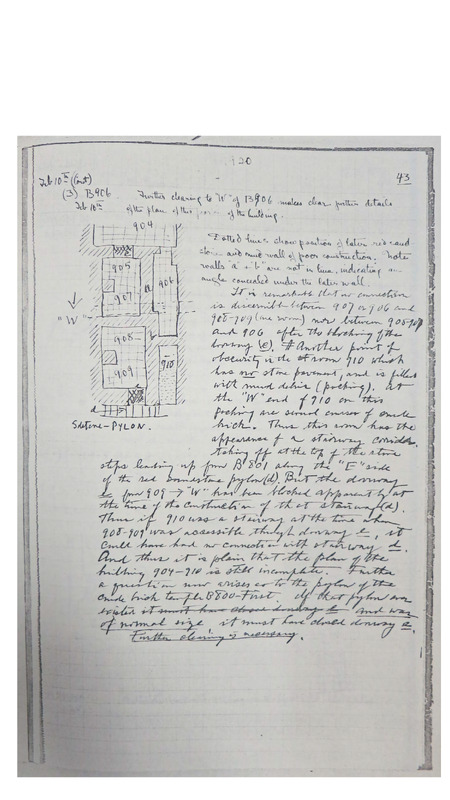 1920
43
Feb 10th (Cont)
(3) B906
Feb 10th
Further clearing to "W" of B906 makes clear further details
of the plan of this of the building.
904
905
906
907
a
b
908
909
910
"W"
d
Sdstone-PYLON.
Dotted lines show position of later red sand
stone and mud wall of poor construction. Note
walls "a + b" are not in line, indicating an
angle concealed under the later wall.
It is remarkable that no connection
is discernible between 907 or 906 and
908-909 (one room) nor between 908-909
and 906 after the blocking of the
doorway (c). Another point of
obscurity is the room 910 which
has no stone pavement, and is filled
with mud debris (packing). At
the "W" end of 910 on this
packing are several courses of crude
brick. Thus this room has the
appearance of a stairway corridor
taking off at the top of the stone
steps leading up from B801 along the "E" side
of the red sandstone pylon (d). But the doorway
from 909 → "W" has been blocked apparently at
the time of the construction of that stairway (d).
Thus if 910 was a stairway at the time when
908-909 was accessible through doorway it
could have had no connection with stairway d.
And thus it is plain that the plan of the
building 904-910 is still incomplete. Further
a question now arises as to the pylon of the
crude brick temple B800-First. If that pylon ever
existed it must have closed doorway and was
of normal size, it must have closed doorway
Further clearing is necessary.